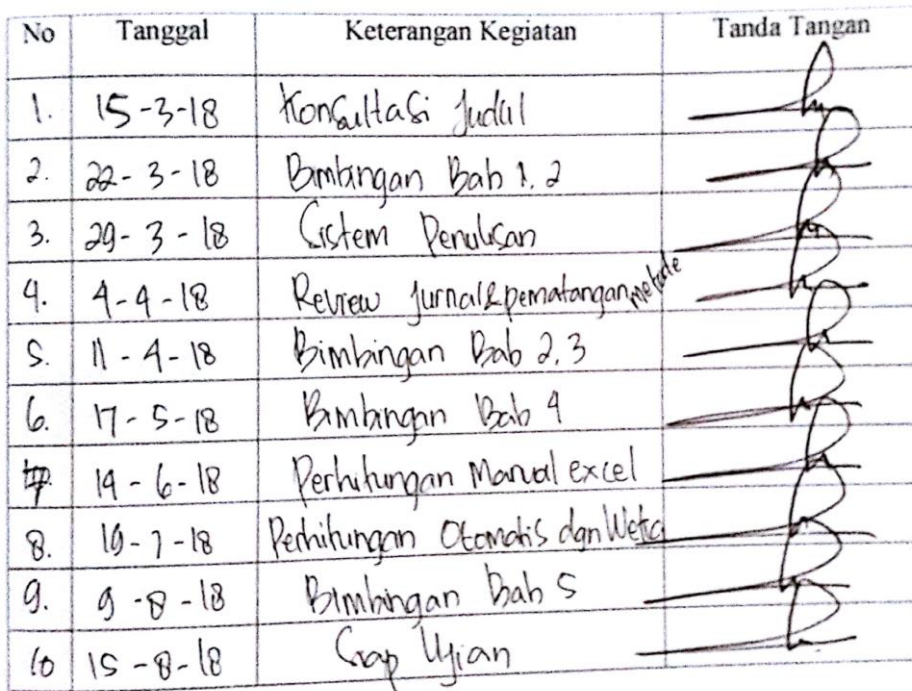 No Tanggal Keterangan Kegiatan Tanda Tangan
1. 15-3-18 Konsultasi Judul
2. 22-3-18 Bimbingan Bab 1, 2
3. 29-3-18 Sistem Penulisan
4. 4-4-18 Review Jurnal & pematangan metode
5. 11-4-18 Bimbingan Bab 2, 3
6. 17-5-18 Bimbingan Bab 4
7. 14-6-18 Perhitungan Manual excel
8. 19-7-18 Perhitungan Otomatis dgn Weka
9. 9-8-18 Bimbingan Bab 5
10 15-8-18 Siap Ujian